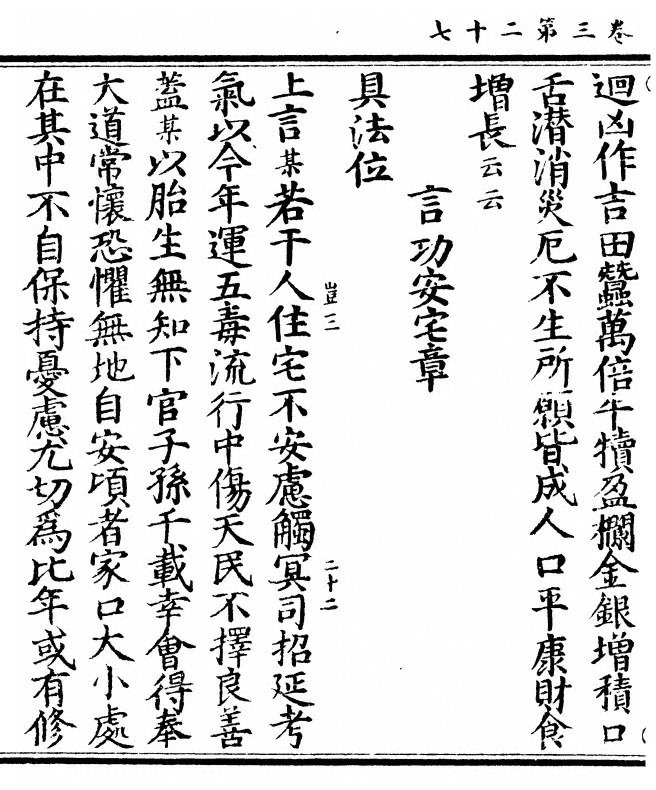 卷三第二十七
迴凶作吉田蠶萬倍牛犢盈欄金銀增積口
舌潛消災厄不生所願皆成人口平康財食
增長云云
言功安宅章
具法位
上言某若干人住宅不安慮觸冥司招延考
豈三
二十二
氣以今年運五毒流行中傷天民不擇良善
蓋某以胎生無知下官子孫千載幸會得奉
大道常懷恐懼無地自安頃者家口大小處
在其中不自保持憂慮尤切爲比年或有修